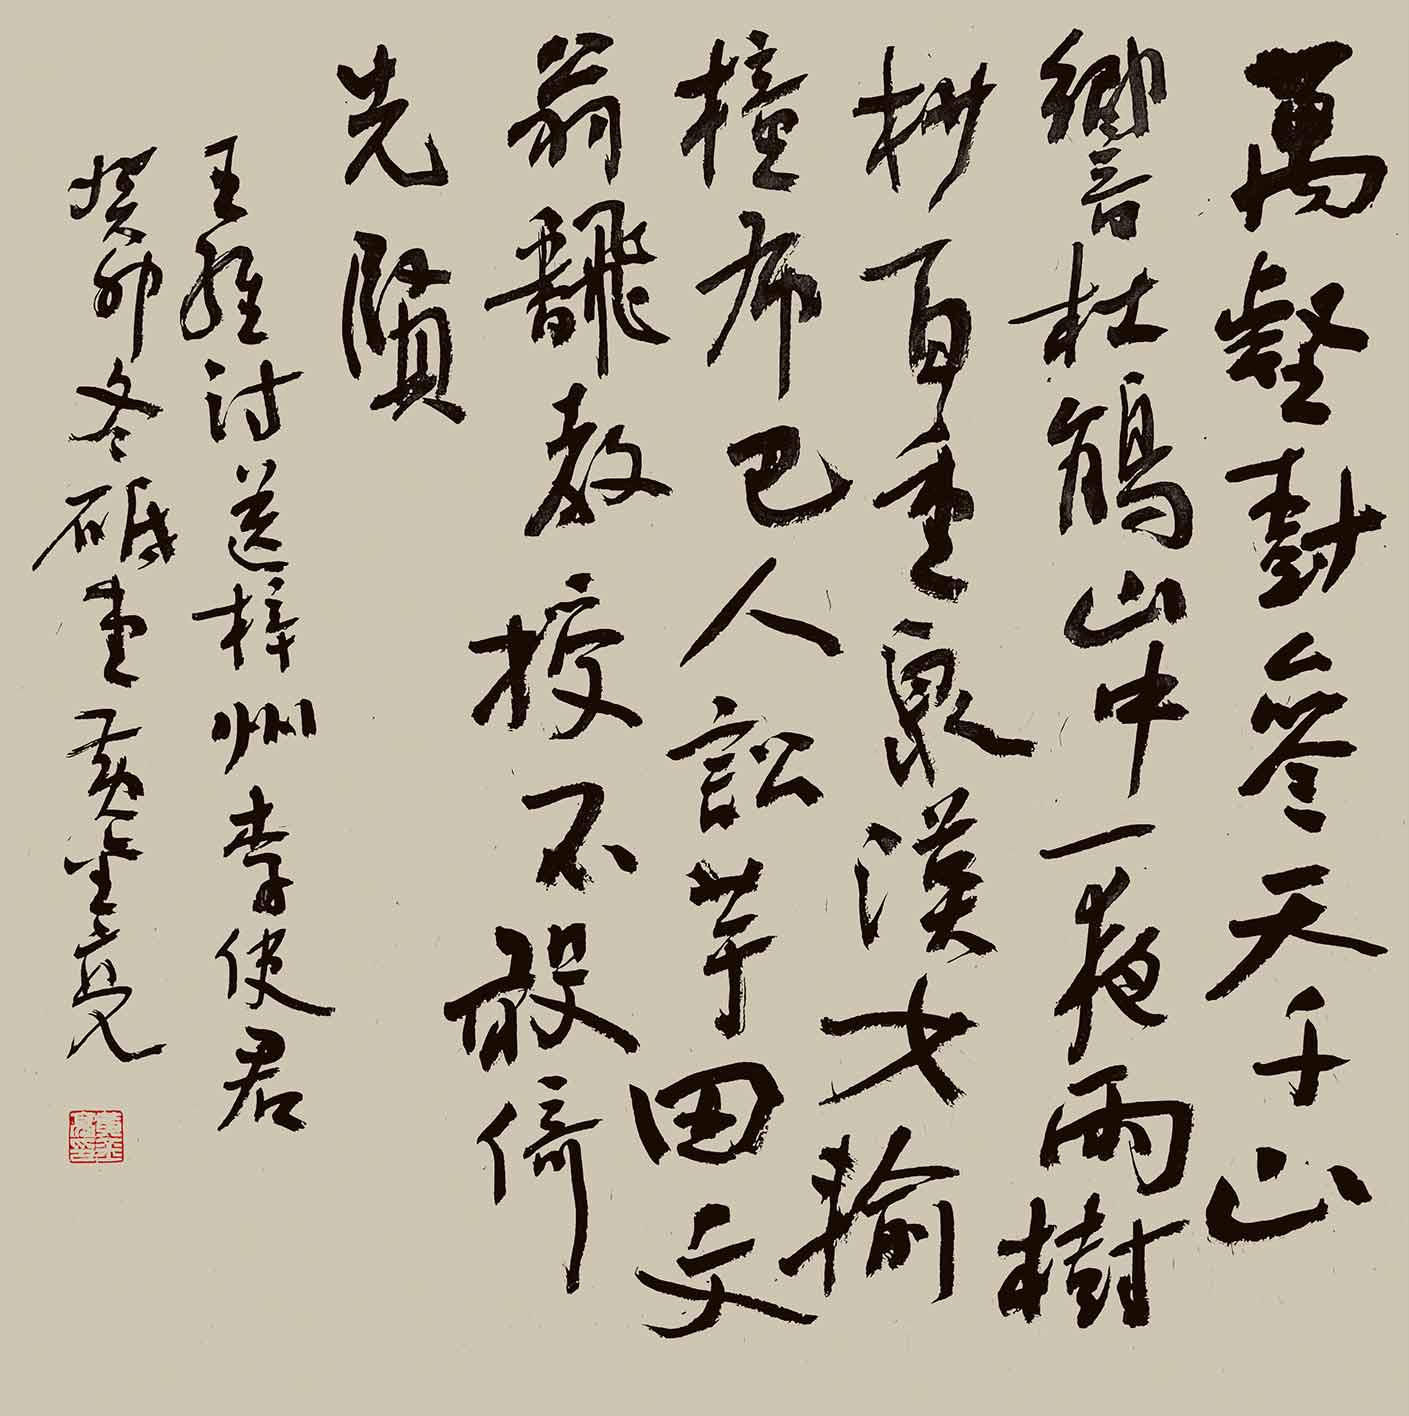 萬壑尌參天千山
響杜鵑山中一夜雨樹
杪百重泉漢女輸
橦布巴人訟芋田文
翁飜教授不敢倚
先賢
王維詩送梓州李使君
癸卯冬砥堂黃亮